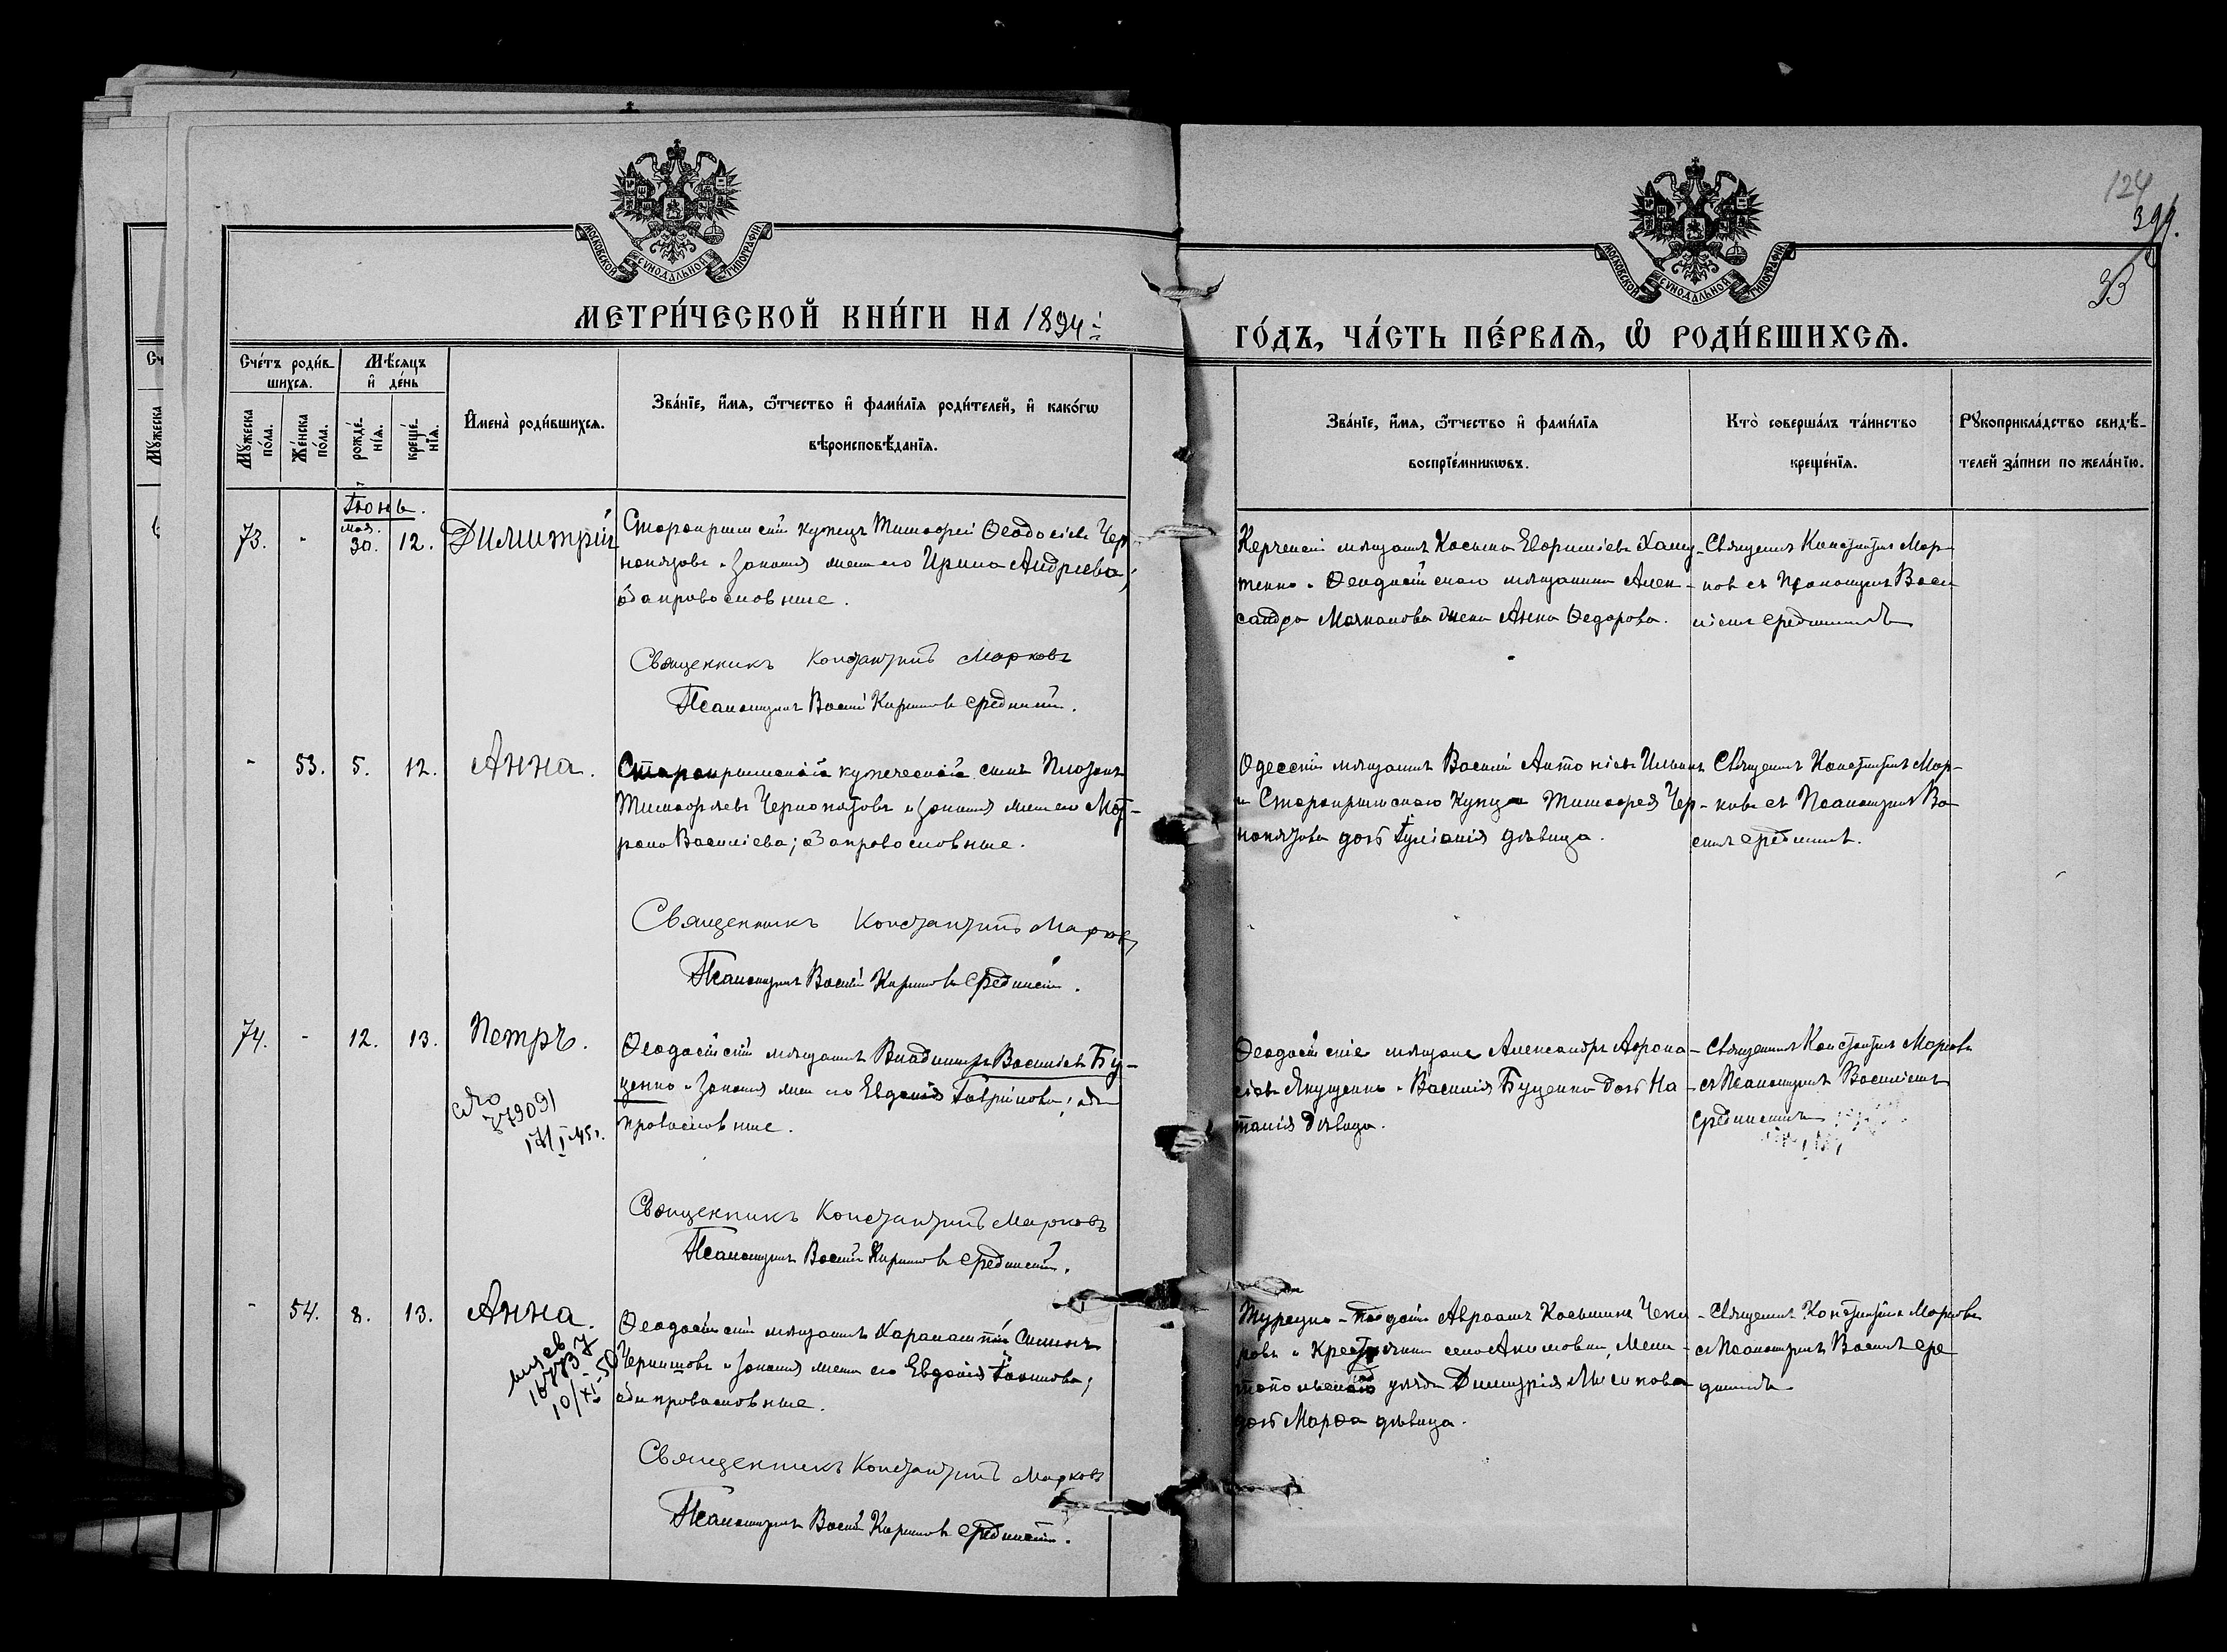 124
394.
33
МОСКОВСКОЙ СѴНОДАЛЬНОЙ ТИПОГРАФІИ
МОСКОВСКОЙ СѴНОДАЛЬНОЙ ТИПОГРАФІИ
МЕТРИ́ЧЕСКОЙ КНИ́ГИ НА 1894й
ГО́ДЪ, ЧА́СТЬ ПЕ́РВАѦ, Ѡ РОДИ́ВШИХСѦ.
Сче́тъ роди́в-
шихсѧ.
Мꙋжеска по́ла.
Же́нска по́ла.
Мѣ́сѧцъ
и҆ де́нь
рожде́-
нїѧ.
креще́-
нїѧ.
И҆мена̀ роди́вшихсѧ.
Зва́нїе, и҆́мѧ, ѻ҆́тчество и҆ фами́лїѧ роди́телей, и҆ како́гѡ
вѣроисповѣ́данїѧ.
Зва́нїе, и҆́мѧ, ѻ҆́тчество и҆ фами́лїѧ
воспрїе́мникѡвъ.
Кто̀ соверша́лъ та́инство
креще́нїѧ.
Рꙋкоприкла́дство свидѣ́-
телей за́писи по жела́нїю.
Іюнь.
73. - мая. 30. 12. Димитрій
Старокрымскій купецъ Тимофей Ѳеодосіевъ Чер
нопятовъ и законная жена его Ирина Андреева;
оба православные.
Священникъ Константинъ Марковъ
Псаломщикъ Василій Кириловъ Срединскій.
Керченскій мѣщанинъ Косьма
тенко и Ѳеодосійскаго мѣщанина Алек-
сандра жена Анна Ѳедорова.
Священникъ Константинъ Мар
ковъ съ Псаломщикомъ Васи
ліемъ Срединскимъ
- 53. 5. 12. Анна.
Старокрымскій купеческій сынъ Платонъ
Тимофеевъ Чернопятовъ и законная жена его Мат-
рона Василіева; оба православные.
Священникъ Константинъ Марков
Псаломщикъ Василій Кириловъ Срединскій.
Одесскій мѣщанинъ Василій Антоніевъ Ильинъ
и Старокрымскаго купца Тимофея Чер-
нопятова дочь Іуліанія дѣвица.
Священникъ Константинъ Мар-
ковъ съ Псаломщикомъ Ва
силіемъ Срединскимъ.
74. - 12. 13. Петръ.
Ѳеодосійскій мѣщанинъ Владимиръ Василіевъ Бу-
ценко и законная жена его Евдокія Гаврилова; оба
православные.
79091
17/I 45г.
Священникъ Константинъ Марковъ
Псаломщикъ Василій Кириловъ Срединскій.
Ѳеодосійскіе мѣщане Александръ Аѳана-
сіевъ Якущенко и Василія Буценко дочь На
талія дѣвица.
Священникъ Константинъ Марковъ
съ Псаломщикомъ Василіемъ
Срединскимъ
- 54. 8. 13. Анна.
Ѳеодосійскій мѣщанинъ Харалампій Симоновъ
Чернышовъ и законная жена его Евдокія Іоакимова;
оба православные.
10/XI-50
Священникъ Константинъ Марковъ
Псаломщикъ Василій Кириловъ Срединскій.
Турецко-подданый Авраамъ Косьминъ
ровъ и Крестьянина села Акимовки, Мели-
топольскаго уѣзда Димитрія Лысикова
дочь Марѳа дѣвица.
Священникъ Константинъ Марковъ
съ Псаломщикомъ Василіемъ Сре
динскимъ